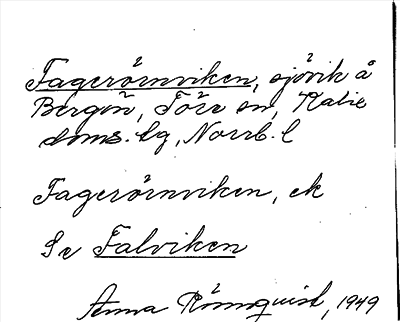 Fagerörnviken, sjövik å
Bergön, Töre sn, Kalix
doms. lg, Norrb. l
Fagerörnviken, ek
Se Falviken
Anna Rönnquist, 1949